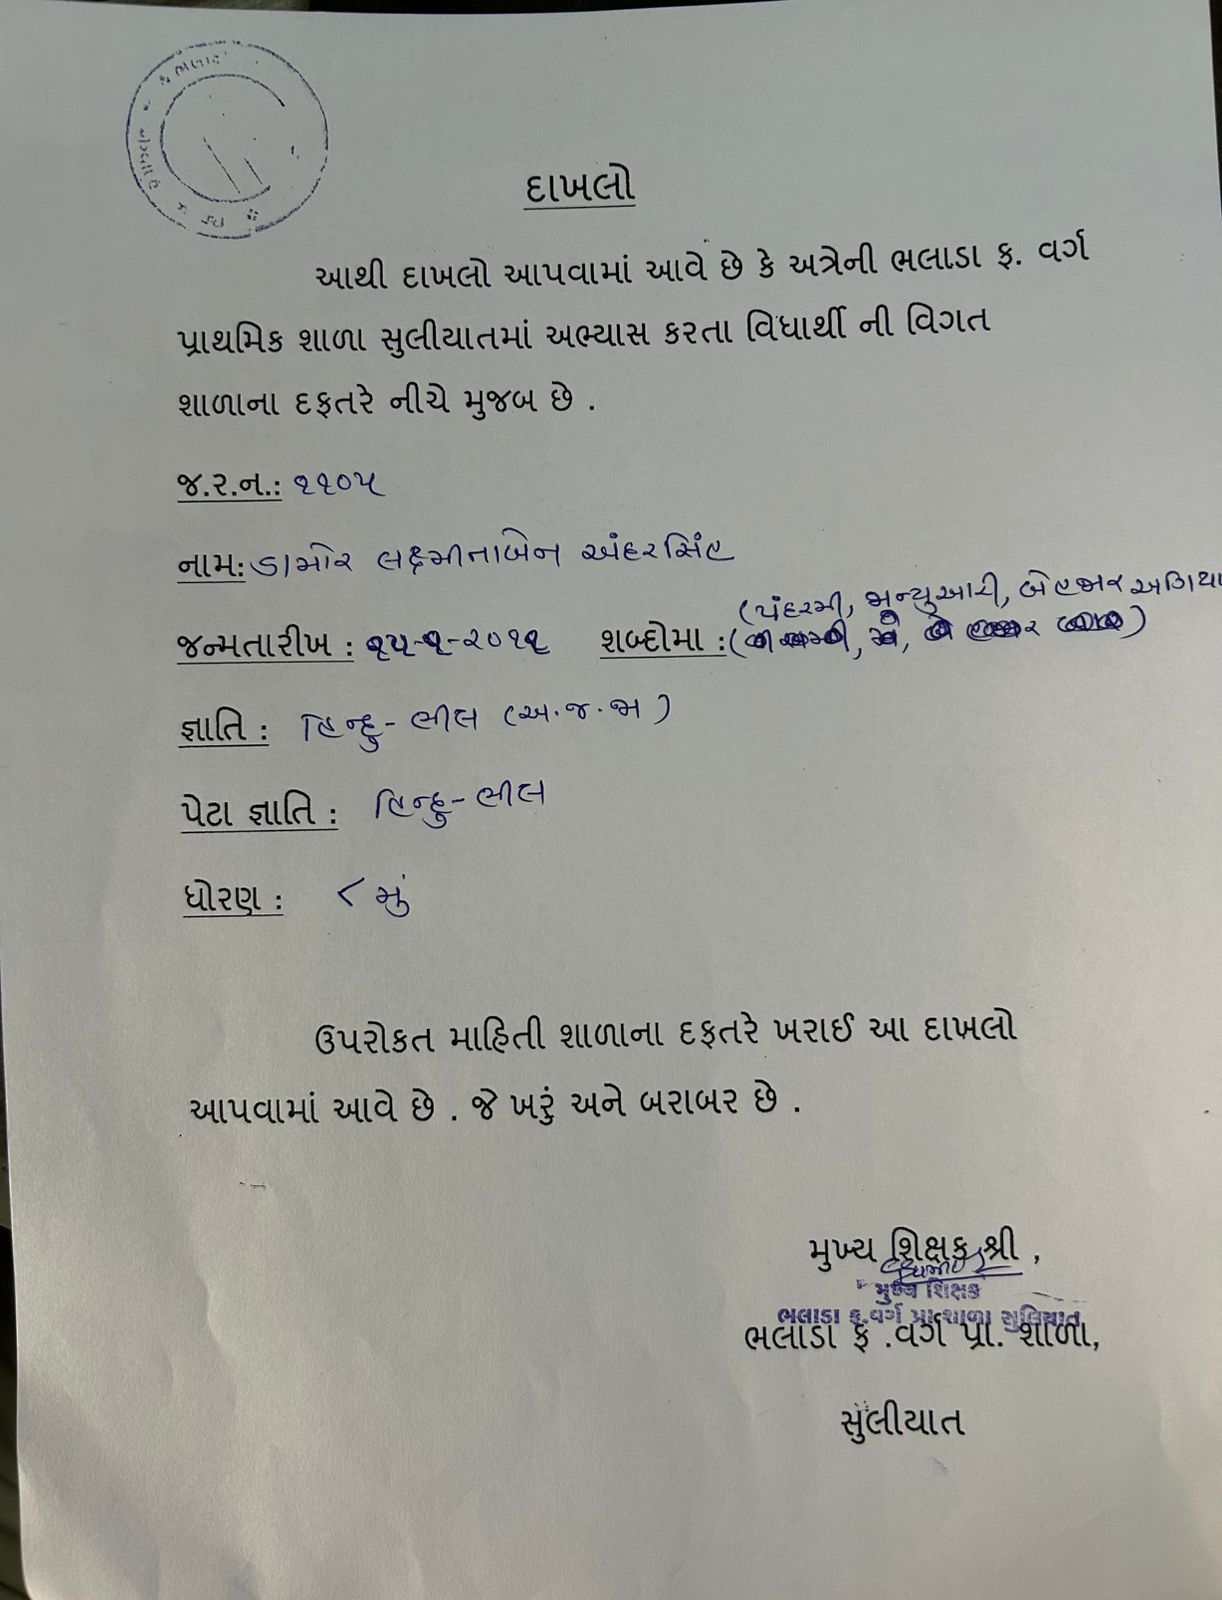 દાખલો
આથી દાખલો આપવામાં આવે છે કે અત્રેની ભલાડા ફ. વર્ગ
પ્રાથમિક શાળા સુલીયાતમાં અભ્યાસ કરતા વિધાર્થી ની વિગત
શાળાના દફતરે નીચે મુજબ છે .
જ.ર.ન.: ૧૧૦૫
નામ: ડામોર લક્ષ્મીતાબેન અંદરસિંહ
(પંદરમી, જાન્યુઆરી, બેહજાર અગિયા
જન્મતારીખ : ૧૫-૧-૨૦૧૧ શબ્દોમા :
જ્ઞાતિ : હિન્દુ-ભીલ (અ.જ.જા)
પેટા જ્ઞાતિ : હિન્દુ-ભીલ
ધોરણ : ૮ મું
ઉપરોકત માહિતી શાળાના દફતરે ખરાઈ આ દાખલો
આપવામાં આવે છે . જે ખરું અને બરાબર છે .
મુખ્ય શિક્ષક શ્રી ,
મુખ્ય શિક્ષક
ભલાડા ફ.વર્ગ પ્રા.શાળા સુલિયાત
ભલાડા ફ .વર્ગ પ્રા. શાળા,
સુલીયાત